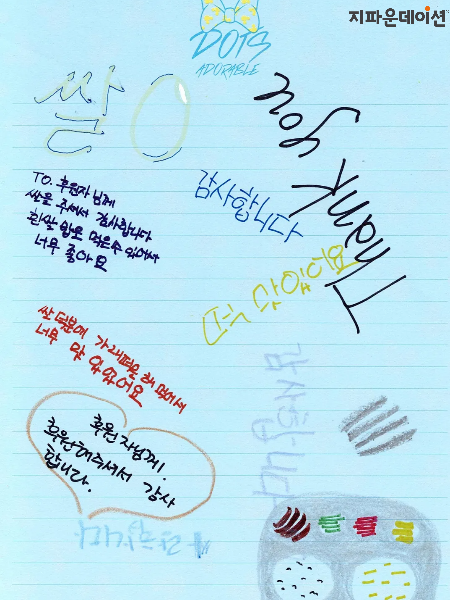 지파운데이션
DOTS
ADORABLE
쌀
Thank you
TO. 후원자님께
쌀을 주셔서 감사합니다
흰쌀 밥으로 먹은수 있어서
너무 좋아요
감사합니다
떡 맛있어요
쌀 덕분에 가래떡을 해 먹어서
너무 맛 있었어요
감사합니다
후원자님께!
후원해주셔서 감사
합니다.